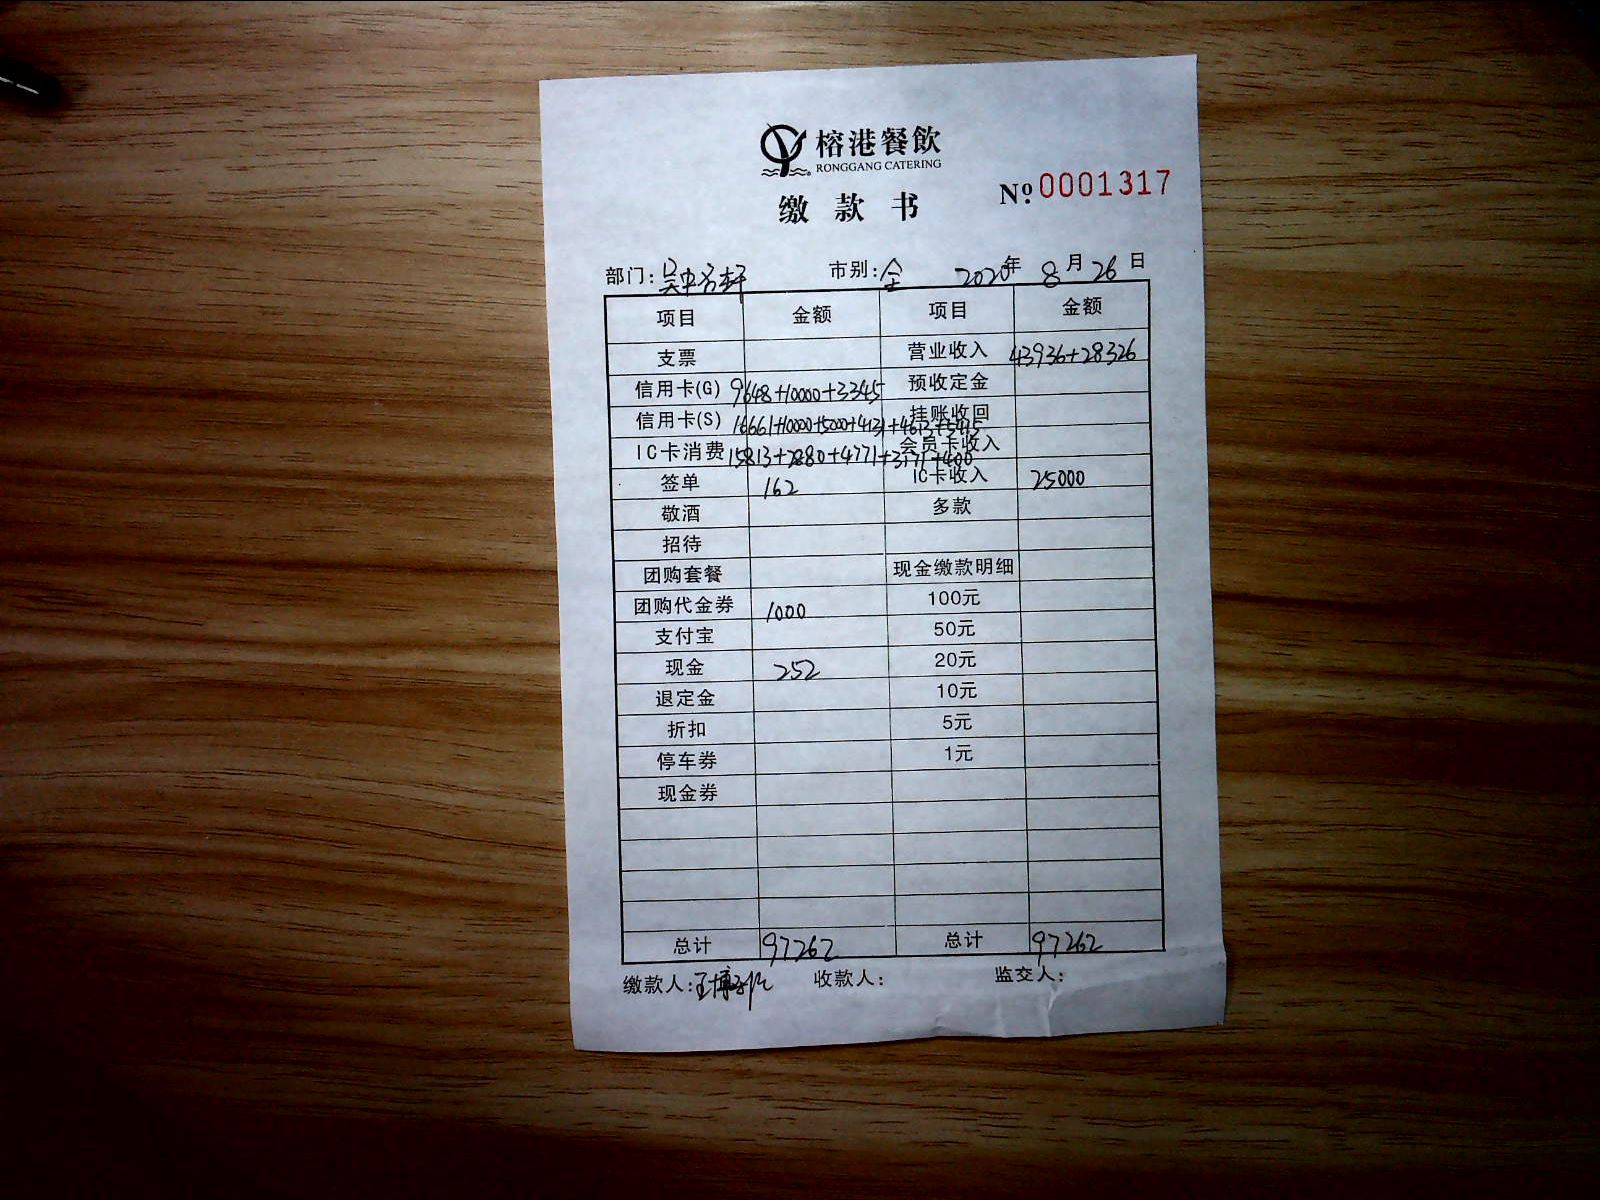 榕港餐飲
RONGGANG CATERING
缴款书
№ 0001317
部门: 市别:全 2020年 8月26日
项目 金额 项目 金额
支票 营业收入 43936+28326
信用卡(G) 9648+10000+3345 预收定金
信用卡(S) 挂账收回
IC卡消费 会员卡收入
签单 162 IC卡收入 25000
敬酒 多款
招待
团购套餐 现金缴款明细
团购代金券 1000 100元
支付宝 50元
现金 252 20元
退定金 10元
折扣 5元
停车券 1元
现金券
总计 97262 总计 97262
缴款人: 收款人: 监交人: